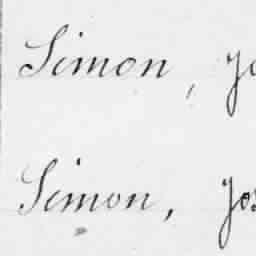 Simon, Jo
Simon, Jos